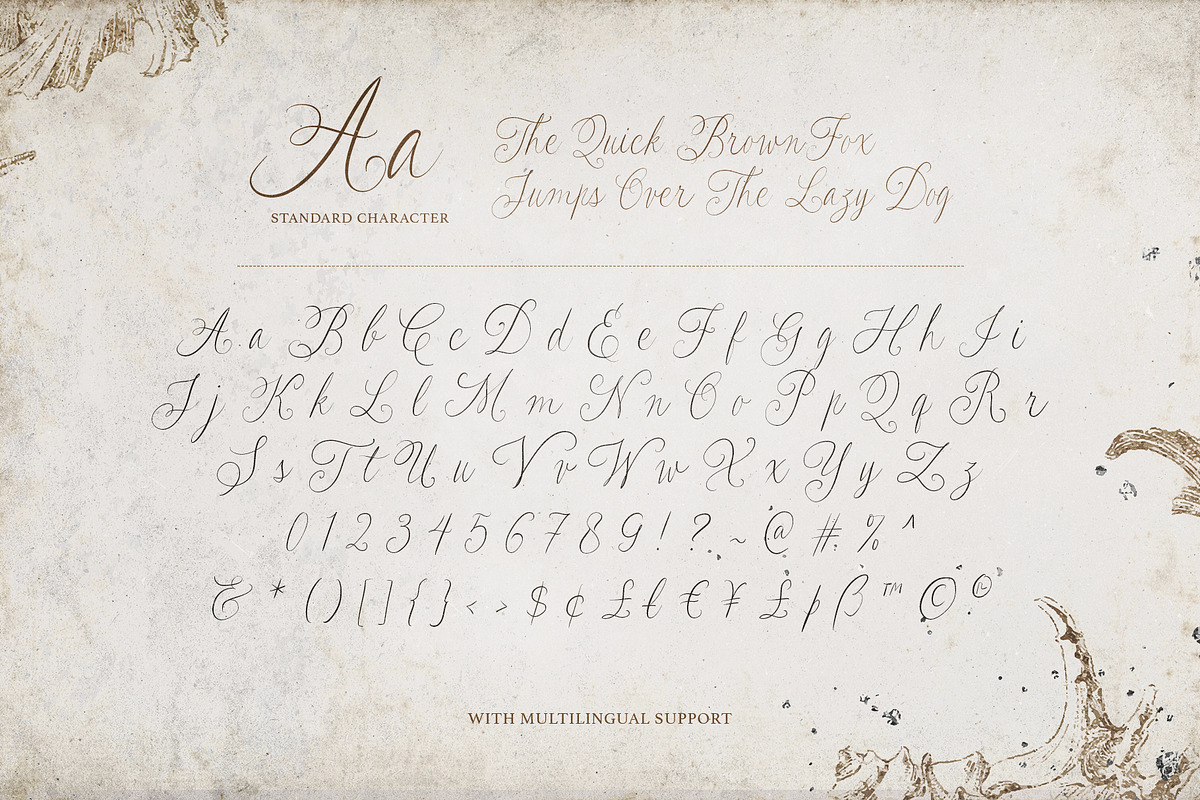 Aa
STANDARD CHARACTER
The Quick Brown Fox
Jumps Over The Lazy Dog
A a B b C c D d E e F f G g H h I i
J j K k L l M m N n O o P p Q q R r
S s T t U u V v W w X x Y y Z z
0 1 2 3 4 5 6 7 8 9 ! ? . ~ @ # % ^
& * ( ) [ ] { } < > $ ¢ £ ł € ¥ £ þ ß ™ © ®
WITH MULTILINGUAL SUPPORT